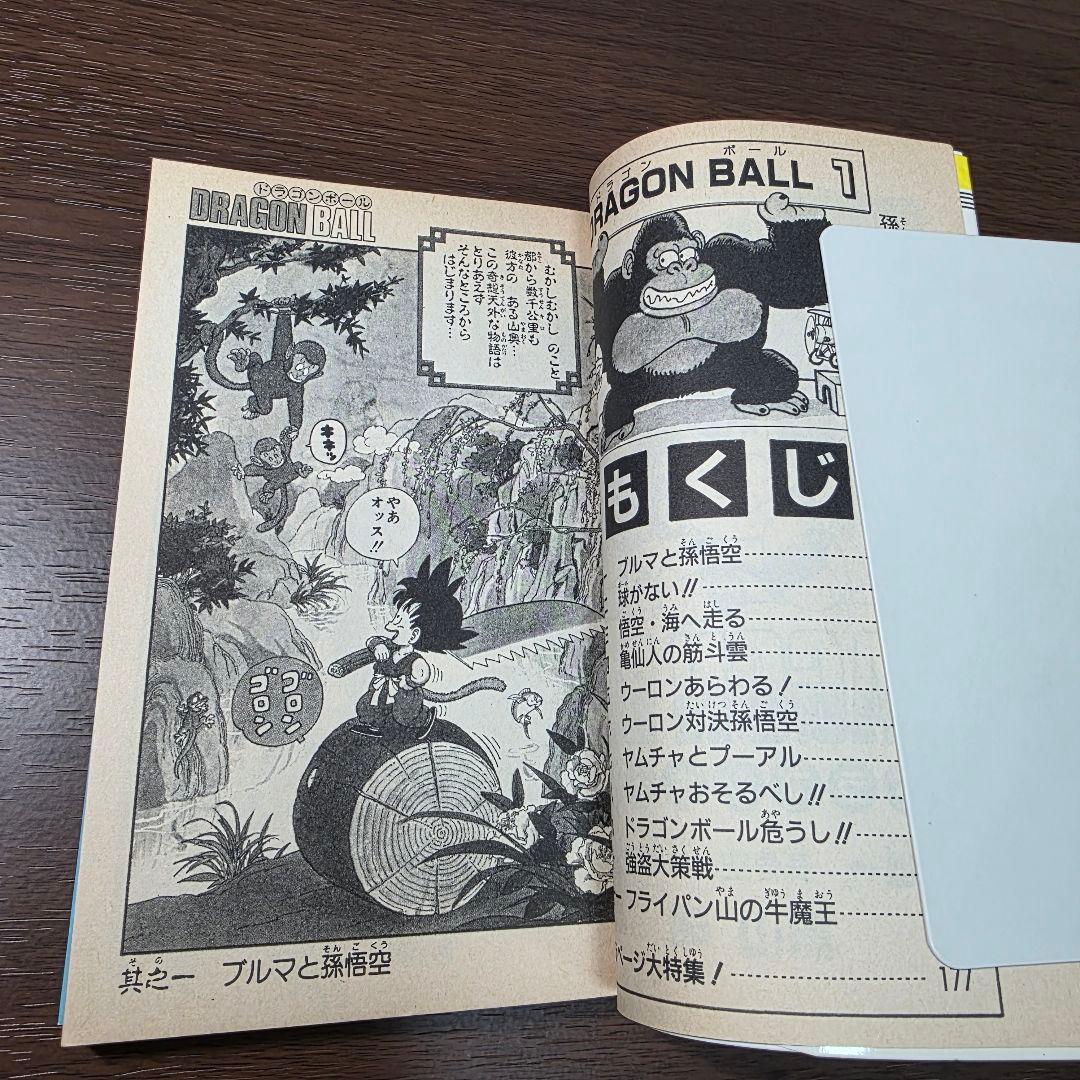 ドラゴンボール
DRAGON BALL
むかしむかし のこと
都から数千公里も
彼方の ある山奥…
この奇想天外な物語は
とりあえず
そんなところから
はじまります…
キキッ
やあ
オッス!!
ゴロン
ゴロン
其之一 ブルマと孫悟空
ドラゴン ボール
DRAGON BALL 1
孫
もくじ
ブルマと孫悟空
球がない!!
悟空・海へ走る
亀仙人の筋斗雲
ウーロンあらわる!
ウーロン対決孫悟空
ヤムチャとプーアル
ヤムチャおそるべし!!
ドラゴンボール危うし!!
強盗大策戦
フライパン山の牛魔王
ページ大特集!